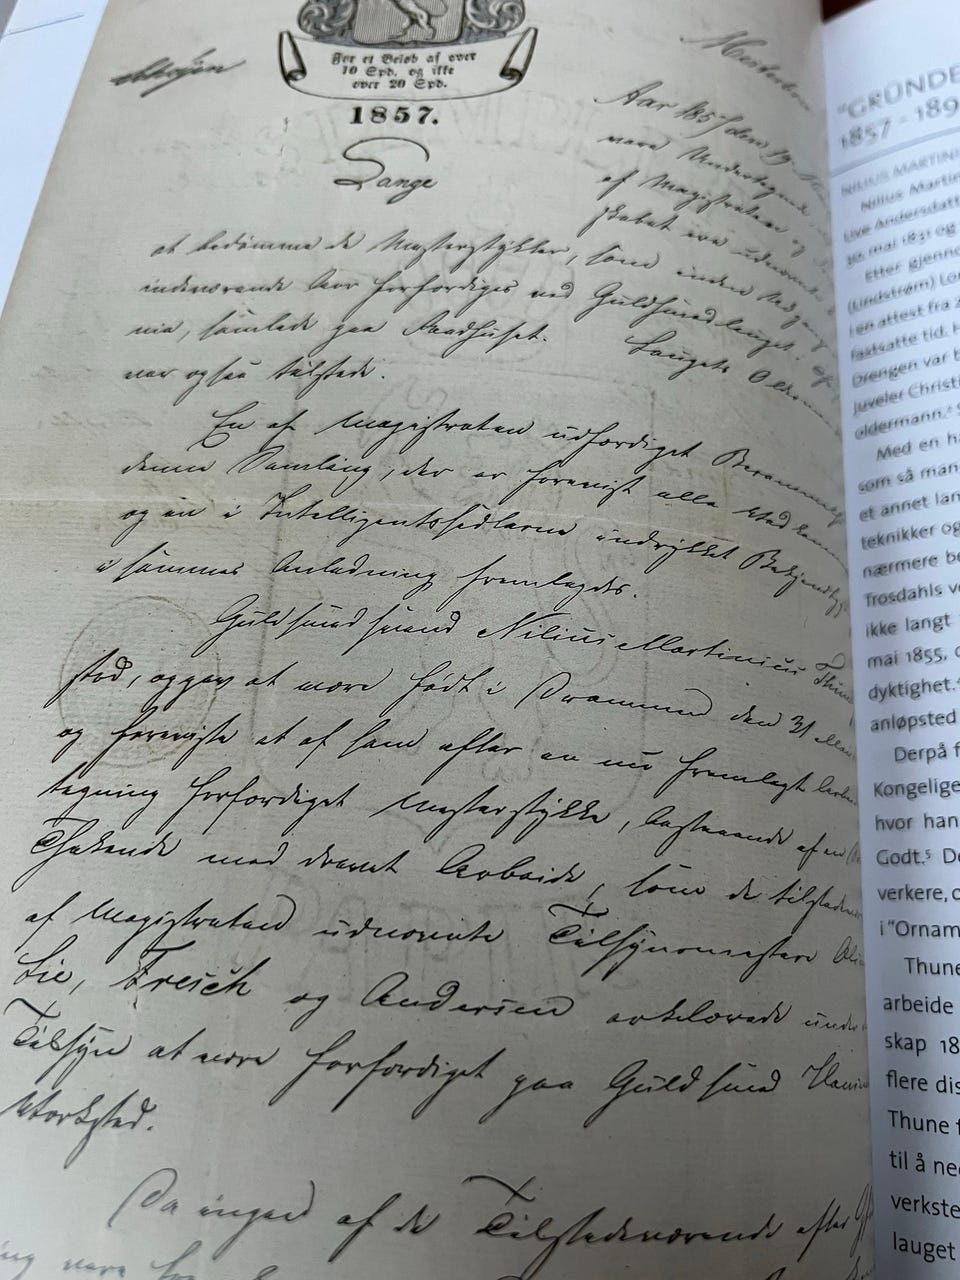 For et Beløb af over
10 Spd. og ikke
over 20 Spd.
1857.
Lange
Aar 1857 den 19
være Undertegnede
af Magistraten og
skabet ere udnævnte
at bedømme de Mesterstykker, som inden Udgangen
indeværende Aar forfærdiges ved Guldsmedlauget
nia, samlede paa Raadhuset. Laugets Olderm
var ogsaa tilstede.
En af Magistraten udfærdiget Berammelse
denne Samling, der er foreviist alle Vedkomm
og en i Intelligentssedlerne indrykket Bekjendtgj
i sammes Anledning fremlagdes.
Guldsmedsvend Nilius Martinius Thune
stod, opgav at være født i Drammen den 31 Mai
og foreviste et af ham efter en nu fremlagt
tegning forfærdiget Mesterstykke, bestaaende af en
Theekande med drevet Arbeide, som de tilstedev
af Magistraten udnævnte Tilsynsmestere
Lie, Fresch og Andersen erklærede under
Tilsyn at være forfærdiget paa Guldsmed
Værksted.
Da ingen af de Tilstedeværende efter
"GRÜNDE
1857 - 189
NILIUS MARTINI
Nilius Martin
Live Andersdatt
30. mai 1831 og
Etter gjenno
(Lindstrøm) Lor
i en attest fra 2
fastsatte tid. H
Drengen var b
juveler Christi
oldermann.² S
Med en ha
som så man
et annet lan
teknikker og
nærmere be
Trosdahls ve
ikke langt
mai 1855, o
dyktighet.⁴
anløpsted
Derpå f
Kongelige
hvor han
Godt.⁵ De
verkere, o
i "Ornam
Thune
arbeide
skap 18
flere dis
Thune f
til å ne
verkste
lauget